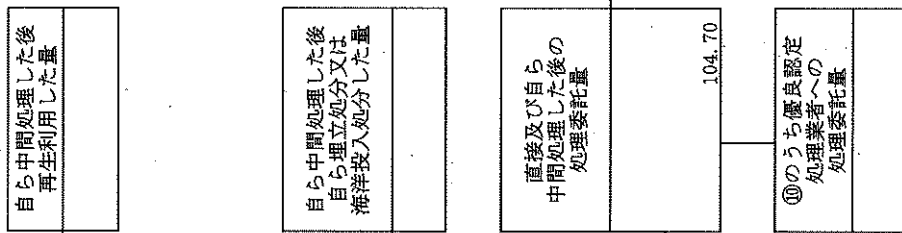 自ら中間処理した後
再生利用した量
自ら中間処理した後
自ら埋立処分又は
海洋投入処分した量
直接及び自ら
中間処理した後の
処理委託量
104.70
⑩のうち優良認定
処理業者への
処理委託量